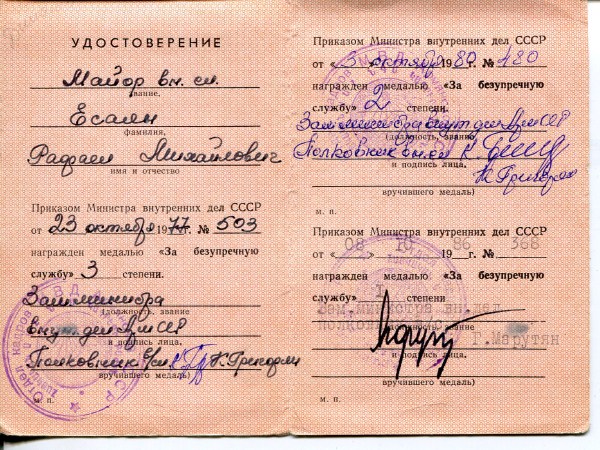 УДОСТОВЕРЕНИЕ
Майор вн. сл.
звание,
Есаян
фамилия,
Рафаел Михайлович
имя и отчество
Приказом Министра внутренних дел СССР
от «23 октября 1977. № 503
награжден медалью «За безупречную
службу» 3 степени.
Зам министра
(должность, звание
внут дел Арм ССР
и подпись лица,
Полковник вн/сл Н. Григорян
вручившего медаль)
м. п.
Приказом Министра внутренних дел СССР
от «3» октября 1980 г. № 480
награжден медалью «За безупречную
службу» 2 степени.
Зам министра внут дел Арм ССР
(должность, звание
Полковник вн. сл
и подпись лица,
Н. Григорян
вручившего медаль)
м. п.
Приказом Министра внутренних дел СССР
08 10 86 368
от « » 19 г. №
награжден медалью «За безупречную
службу» I степени.
Зам. министра вн. дел
(должность, звание
полковник
Г. Марутян
и подпись лица,
вручившего медаль)
м. п.